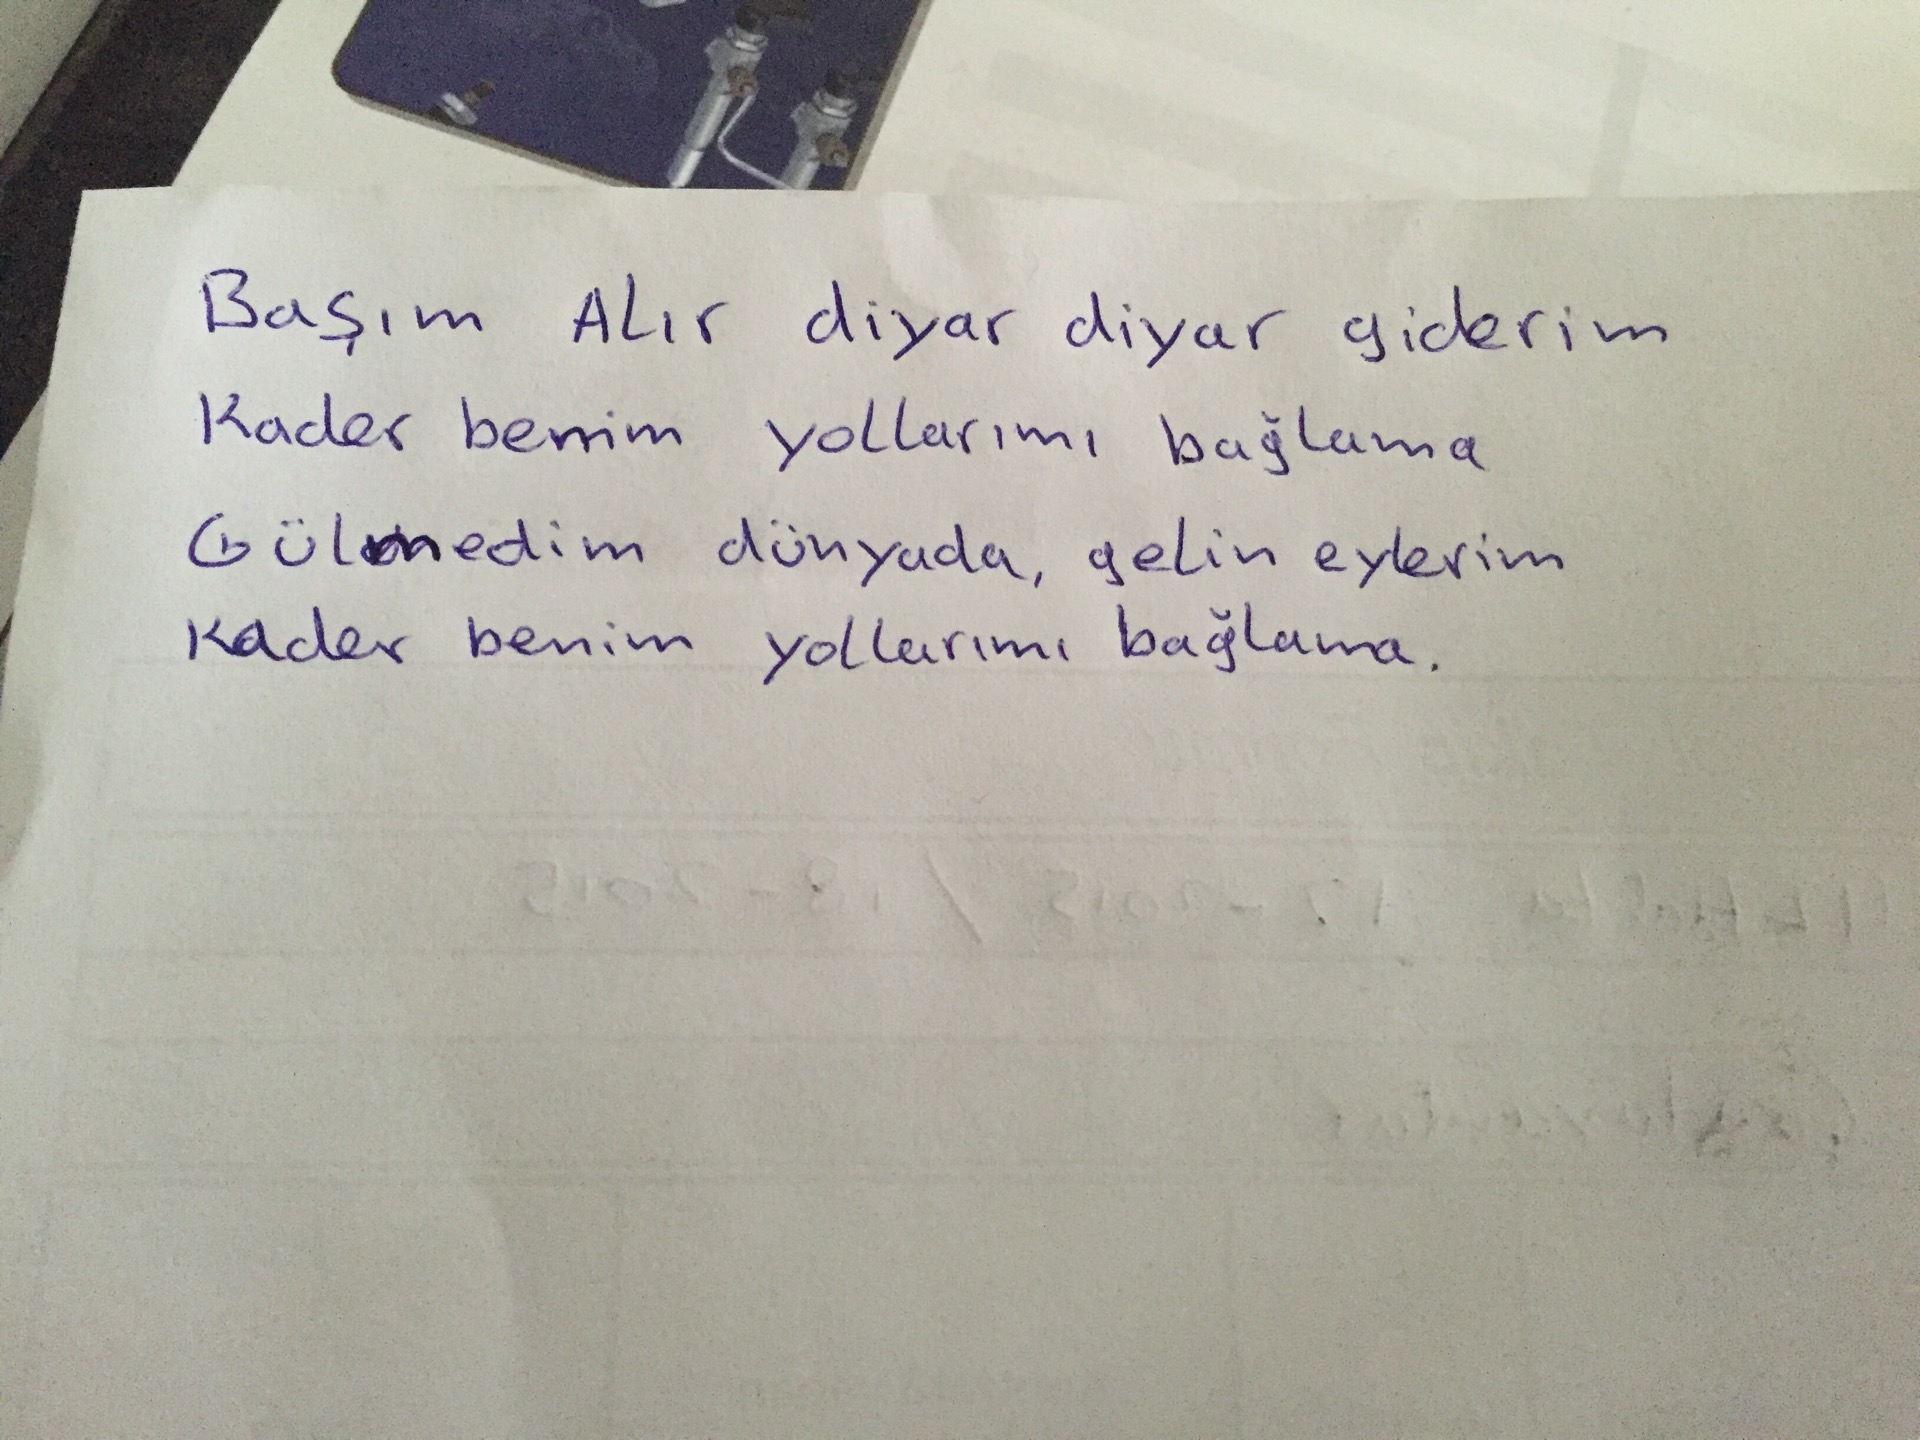 Başım Alır diyar diyar giderim
Kader benim yollarımı bağlama
Gülmedim dünyada, gelin eylerim
Kader benim yollarımı bağlama.